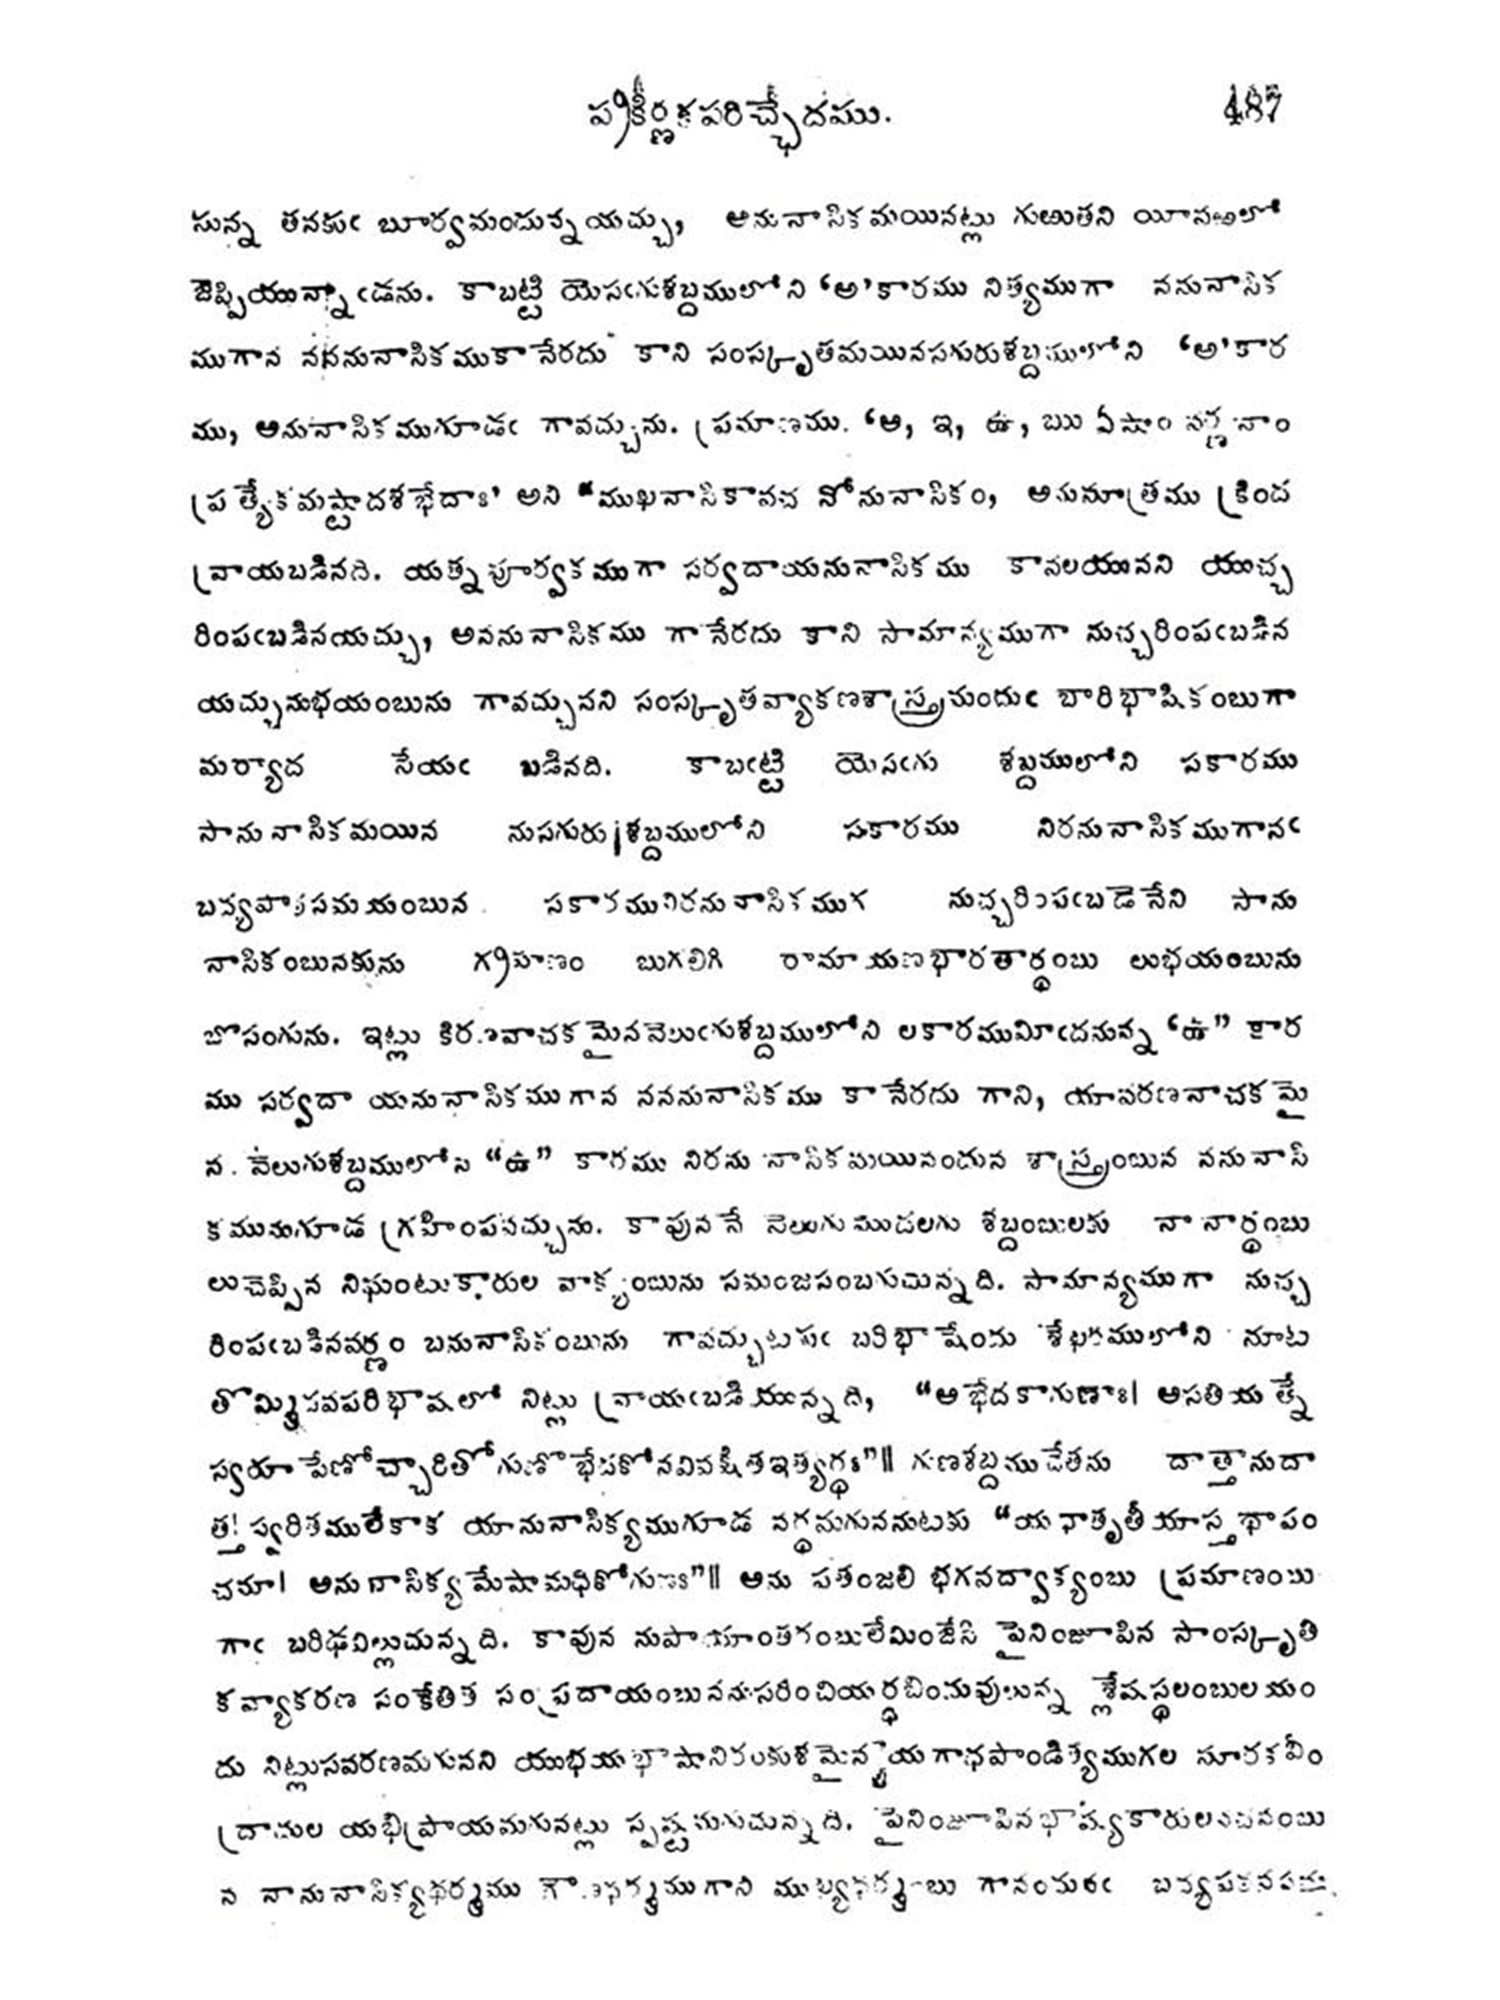 ప్రకీర్ణకపరిచ్ఛేదము. 487
సున్న తనకుఁ బూర్వమందున్నయచ్చు, అనునాసికమయినట్లు గుఱుతని యీసఱలో
జెప్పియున్నాఁడను. కాబట్టి యెసఁగుశబ్దములోని ‘అ’కారము నిత్యముగా ననునాసిక
ముగాన నననునాసికముకానేరదు కాని సంస్కృతమయినసగురుశబ్దములోని ‘అ’కార
ము, అనునాసికముగూడఁ గావచ్చును. ప్రమాణము. ‘అ, ఇ, ఉ, ఋ ఏషాం వర్ణానాం
ప్రత్యేకమష్టాదశభేదాః’ అని “ముఖనాసికావచ నోనునాసికం, అనుసూత్రము క్రింద
వ్రాయబడినది. యత్నపూర్వకముగా సర్వదాయనునాసికము కావలయునని యుచ్చ
రింపఁబడినయచ్చు, అననునాసికము గానేరదు కాని సామాన్యముగా నుచ్చరింపఁబడిన
యచ్చునుభయంబును గావచ్చునని సంస్కృతవ్యాకణశాస్త్రమందుఁ బారిభాషికంబుగా
మర్యాద సేయఁ బడినది. కాబఁట్టి యెసఁగు శబ్దములోని సకారము
సానునాసికమయిన నుసగురు శబ్దములోని సకారము నిరనునాసికముగానఁ
బద్యపాఠసమయంబున సకారమునిరనునాసికముగ నుచ్చరింపఁబడెనేని సాను
నాసికంబునకును గ్రహణం బుగలిగి రామాయణభారతార్థంబు లుభయంబును
బొసంగును. ఇట్లు కిరణవాచకమైనవెలుఁగుశబ్దములోని లకారముమీఁదనున్న ‘ఉ” కార
ము సర్వదా యనునాసికముగాన నననునాసికము కానేరదు గాని, యావరణవాచకమై
న వెలుగుశబ్దములోని “ఉ” కారము నిరను నాసికమయినందున శాస్త్రంబున ననునాసి
కమునుగూడ గ్రహింపవచ్చును. కావుననే వెలుగు మొదలగు శబ్దంబులకు నానార్థంబు
లుచెప్పిన నిఘంటుకారుల వాక్యంబును సమంజసంబగుచున్నది. సామాన్యముగా నుచ్చ
రింపఁబడినవర్ణం బనునాసికంబును గావచ్చుటకుఁ బరిభాషేందు శేఖరములోని నూట
తొమ్మిదవపరిభాషలో నిట్లు వ్రాయఁబడియున్నది, “అభేదకాగుణాః। అసతియత్నే
స్వరూపేణోచ్చారితోగుణో భేదకోనవివక్షితఇత్యర్థః”॥ గుణశబ్దముచేతను దాత్తానుదా
త్త! స్వరితములేకాక యానునాసిక్యముగూడ నర్థమగుననుటకు “యథాతృతీయాస్తథాపం
చమా। అనునాసిక్యమేషామధికోగుణః”॥ అను పతంజలి భగవద్వాక్యంబు ప్రమాణంబు
గాఁ బరిఢవిల్లుచున్నది. కావున నుపాయాంతరంబులేమింజేసి పైనింజూపిన సాంస్కృతి
కవ్యాకరణ సంకేతిత సంప్రదాయంబుననుసరించియర్ధబిందువులున్న శ్లేషస్థలంబులయం
దు నిట్లుసవరణమగునని యుభయభాషానిరంకుశమైన గాఢపాండిత్యముగల సూరకవీం
ద్రాదుల యభిప్రాయమగునట్లు స్పష్టమగుచున్నది. పైనింజూపినభాష్యకారులవచనంబు
న నానునాసిక్యధర్మము గౌణధర్మముగాని ముఖ్యధర్మంబు గానందుకుఁ